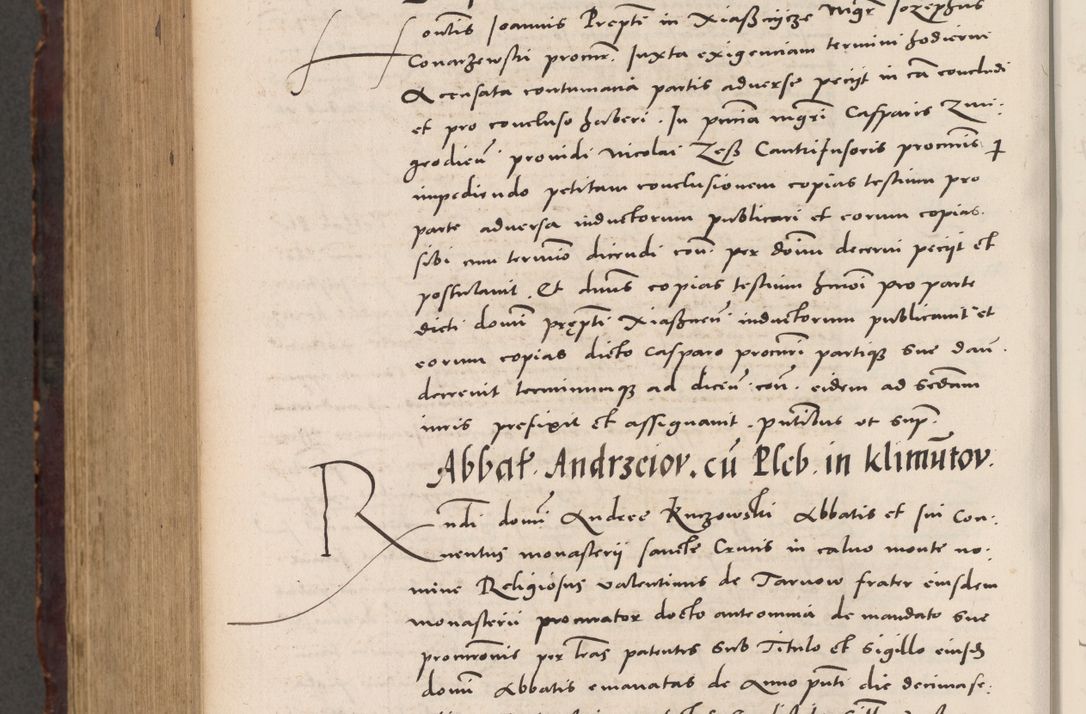 ontis Joannis Prepti in Xiaßnycze Mgr Jozephus
Conarzewski procur. Juxta exigenciam termini hodierni
Accusata contumacia partis adverse peciit in ca concludi
et pro concluso haberi. In pntia mgri Casparis Zmi:
grodien providi Nicolai Zesß Cantrifusoris procuris
impediendo petitam conclusionem copias testium pro
parte adversa inductorum publicari et eorum copias
sibi cum termino dicendi con. per dnum decerni peciit et
postulavit. Et dnus copias testium hmoi pro parte
dicti domi prepti Xiaßnen inductorum publicavit et
eorum copias dicto Casparo procuri partique sue dan.
decrevit terminumque ad dicen. con. eidem ad sedam
iuris prefixit et assignavit. pntibus ut sup.
Abbat. Andrzeiov. cu Pleb. in klimutov.
Rndi domi Andree Ruczowski Abbatis et sui Con:
uentus monasterii sancte Crucis in calvo monte no:
mine Religiosus valentinus de Tarnow frater eiusdem
monasterii procurator docto anteomnia de mandato sue
procuronis per lras patentes sub Titulo et sigillo eiusd
domi Abbatis emanatas de Anno pnti die decimase: